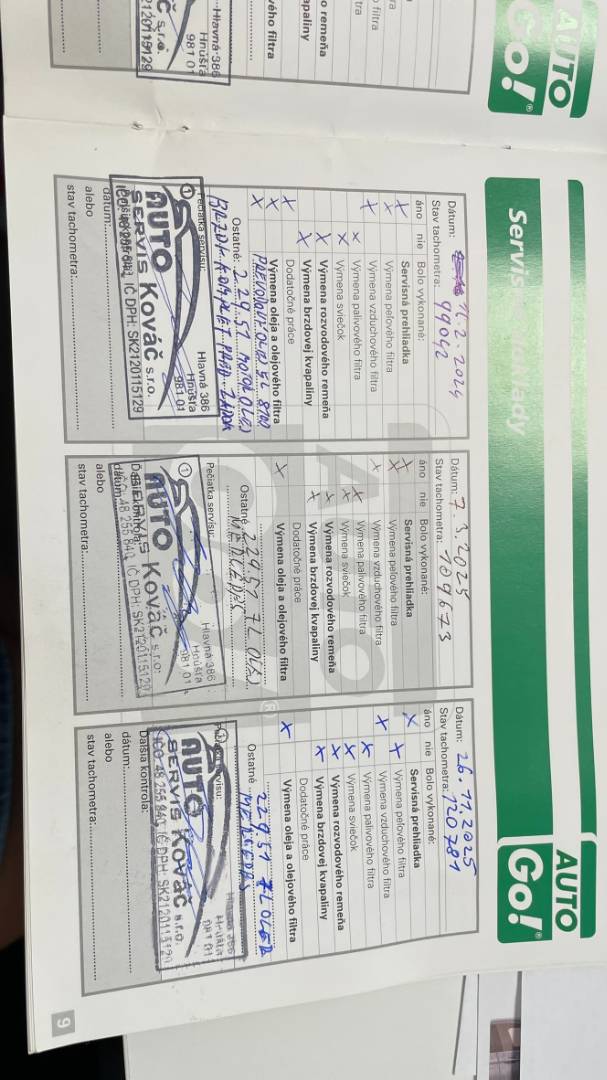 AUTO
Go!
o filtra
filtra
o remeňa
kvapaliny
ového filtra
Hlavná 386
Hnúšťa
981 01
s.r.o.
2120115129
AUTO
Go!
Dátum: 16. 2. 2024
Stav tachometra: 99042
áno nie Bolo vykonané:
x Servisná prehliadka
x Výmena peľového filtra
x Výmena vzduchového filtra
x Výmena palivového filtra
x Výmena sviečok
x Výmena rozvodového remeňa
x Výmena brzdovej kvapaliny
Dodatočné práce
x Výmena oleja a olejového filtra
Ostatné: 229.51 MOTOR OLEJ
Pečiatka servisu:
AUTO
SERVIS Kováč s.r.o.
Hlavná 386
Hnúšťa
981 01
IČO 48 255 840, IČ DPH: SK2120115129
dátum:
alebo
stav tachometra:
Dátum: 7. 3. 2025
Stav tachometra: 109673
áno nie Bolo vykonané:
x Servisná prehliadka
x Výmena peľového filtra
x Výmena vzduchového filtra
x Výmena palivového filtra
x Výmena sviečok
x Výmena rozvodového remeňa
x Výmena brzdovej kvapaliny
Dodatočné práce
x Výmena oleja a olejového filtra
Ostatné 229.51 7L OLEJ
MERCEDES
Pečiatka servisu:
AUTO
SERVIS Kováč s.r.o.
Hlavná 386
Hnúšťa
981 01
IČO 48 255 840, IČ DPH: SK2120115129
Ďalšia kontrola:
dátum:
alebo
stav tachometra:
Dátum: 26. 11. 2025
Stav tachometra: 120781
áno nie Bolo vykonané:
x Servisná prehliadka
x Výmena peľového filtra
x Výmena vzduchového filtra
x Výmena palivového filtra
x Výmena sviečok
x Výmena rozvodového remeňa
x Výmena brzdovej kvapaliny
Dodatočné práce
x Výmena oleja a olejového filtra
Ostatné 229.51 7L OLEJ
MERCEDES
AUTO
SERVIS Kováč s.r.o.
Hlavná 386
Hnúšťa
981 01
IČO 48 255 840, IČ DPH: SK2120115129
Ďalšia kontrola:
dátum:
alebo
stav tachometra:
AUTO
Go!
9